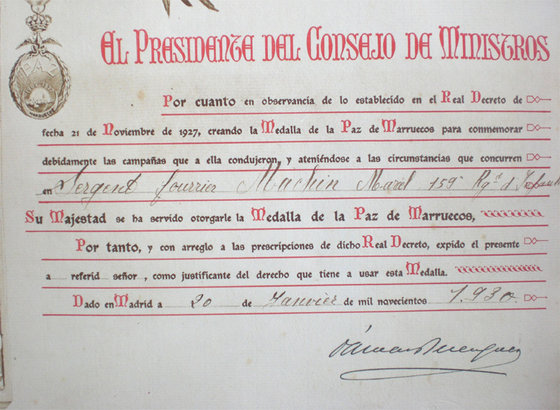 PAZ
MARRUECOS
El Presidente del Consejo de Ministros
Por cuanto en observancia de lo establecido en el Real Decreto de
fecha 21 de Noviembre de 1927, creando la Medalla de la Paz de Marruecos para conmemorar
debidamente las campañas que a ella condujeron, y ateniéndose a las circunstancias que concurren
en Sergent fourrier Machin Marcel 159e Rgt d'Infant
Su Majestad se ha servido otorgarle la Medalla de la Paz de Marruecos,
Por tanto, y con arreglo a las prescripciones de dicho Real Decreto, expido el presente
a referid señor, como justificante del derecho que tiene a usar esta Medalla.
Dado en Madrid a 20 de Janvier de mil novecientos 1.930